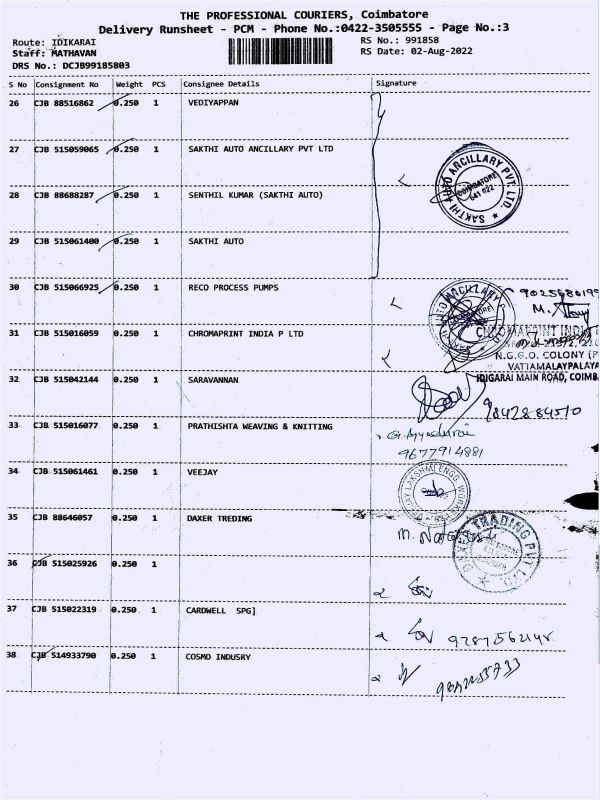 THE PROFESSIONAL COURIERS, Coimbatore
Delivery Runsheet - PCM - Phone No.:0422-3505555 - Page No.:3
Route: IDIKARAI
RS No.: 991858
Staff: MATHAVAN
RS Date: 02-Aug-2022
DRS No.: DCJB99185803
S No Consignment No Weight PCS Consignee Details Signature
26 CJB 88516862 0.250 1 VEDIYAPPAN
27 CJB 515059065 0.250 1 SAKTHI AUTO ANCILLARY PVT LTD
28 CJB 88688287 0.250 1 SENTHIL KUMAR (SAKTHI AUTO)
SAKTHI AUTO ARCILLARY PVT. LTD.
COIMBATORE
641 022
29 CJB 515061400 0.250 1 SAKTHI AUTO
30 CJB 515066925 0.250 1 RECO PROCESS PUMPS
31 CJB 515016059 0.250 1 CHROMAPRINT INDIA P LTD
CHROMAPRINT INDI
N.G.G.O. COLONY (P
VATIAMALAYPALAYA
IDIGARAI MAIN ROAD, COIMB
32 CJB 515042144 0.250 1 SARAVANNAN
9842884510
33 CJB 515016077 0.250 1 PRATHISHTA WEAVING & KNITTING
9677914881
34 CJB 515061461 0.250 1 VEEJAY
35 CJB 88646057 0.250 1 DAXER TREDING
DAXER TRADING PVT LTD
36 CJB 515025926 0.250 1
37 CJB 515022319 0.250 1 CARDWELL SPG]
38 CJB 514933790 0.250 1 COSMO INDUSRY